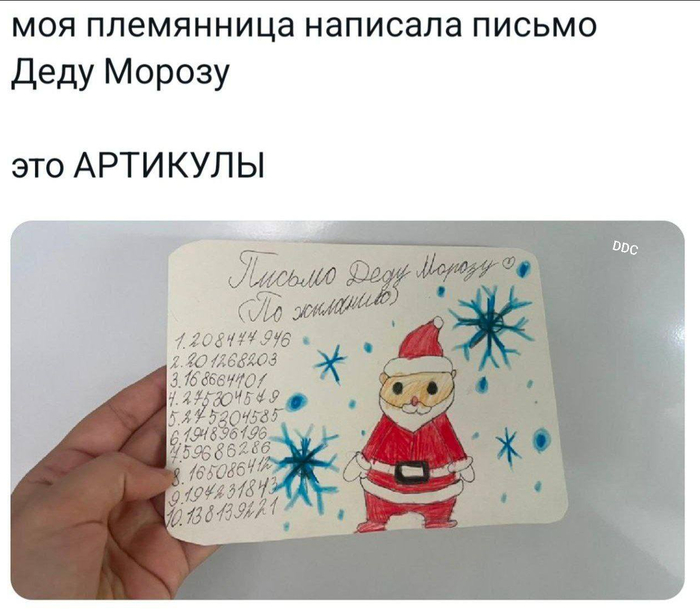 моя племянница написала письмо
Деду Морозу
это АРТИКУЛЫ
DDC
Письмо Деду Морозу
(По желанию)
1.208477946
2.201268203
3.168664101
4.275304549
5.275204585
6.194896196
7.59686286
8.16508641
9.19423184
10.138139221